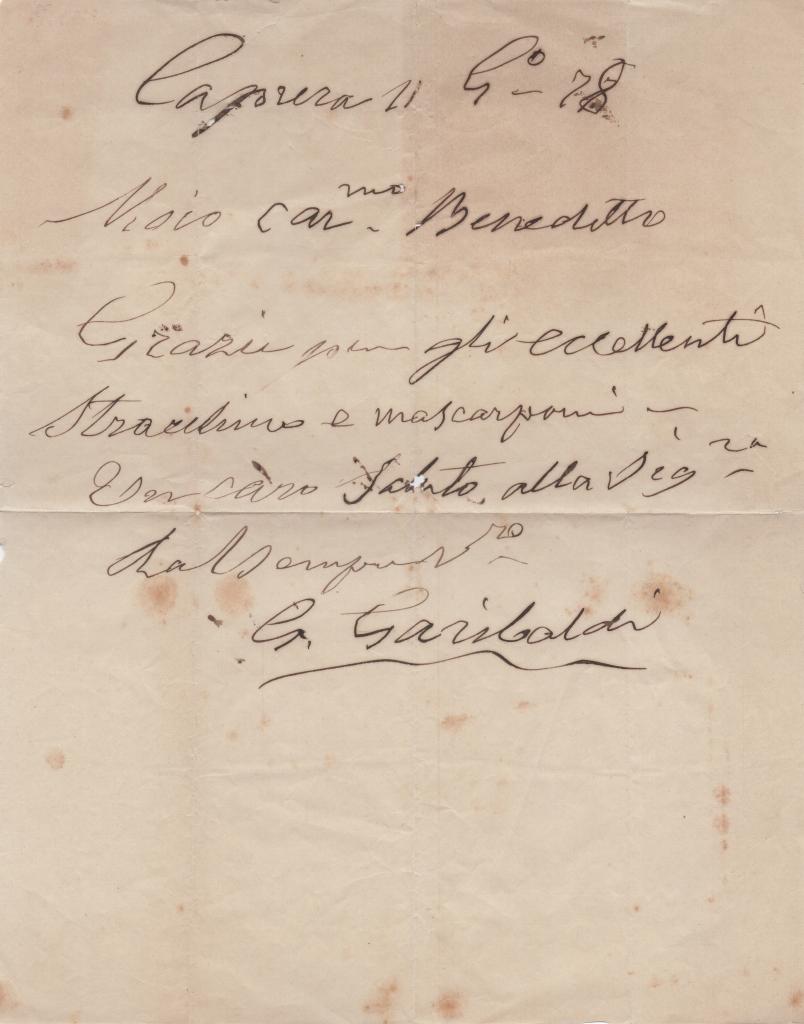 Caprera 11 G.o 78
Mio car.mo Benedetto
Grazie per gli eccellenti
Stracchino e mascarponi –
Un caro saluto alla Sig.ra
dal sempre V.ro
G. Garibaldi